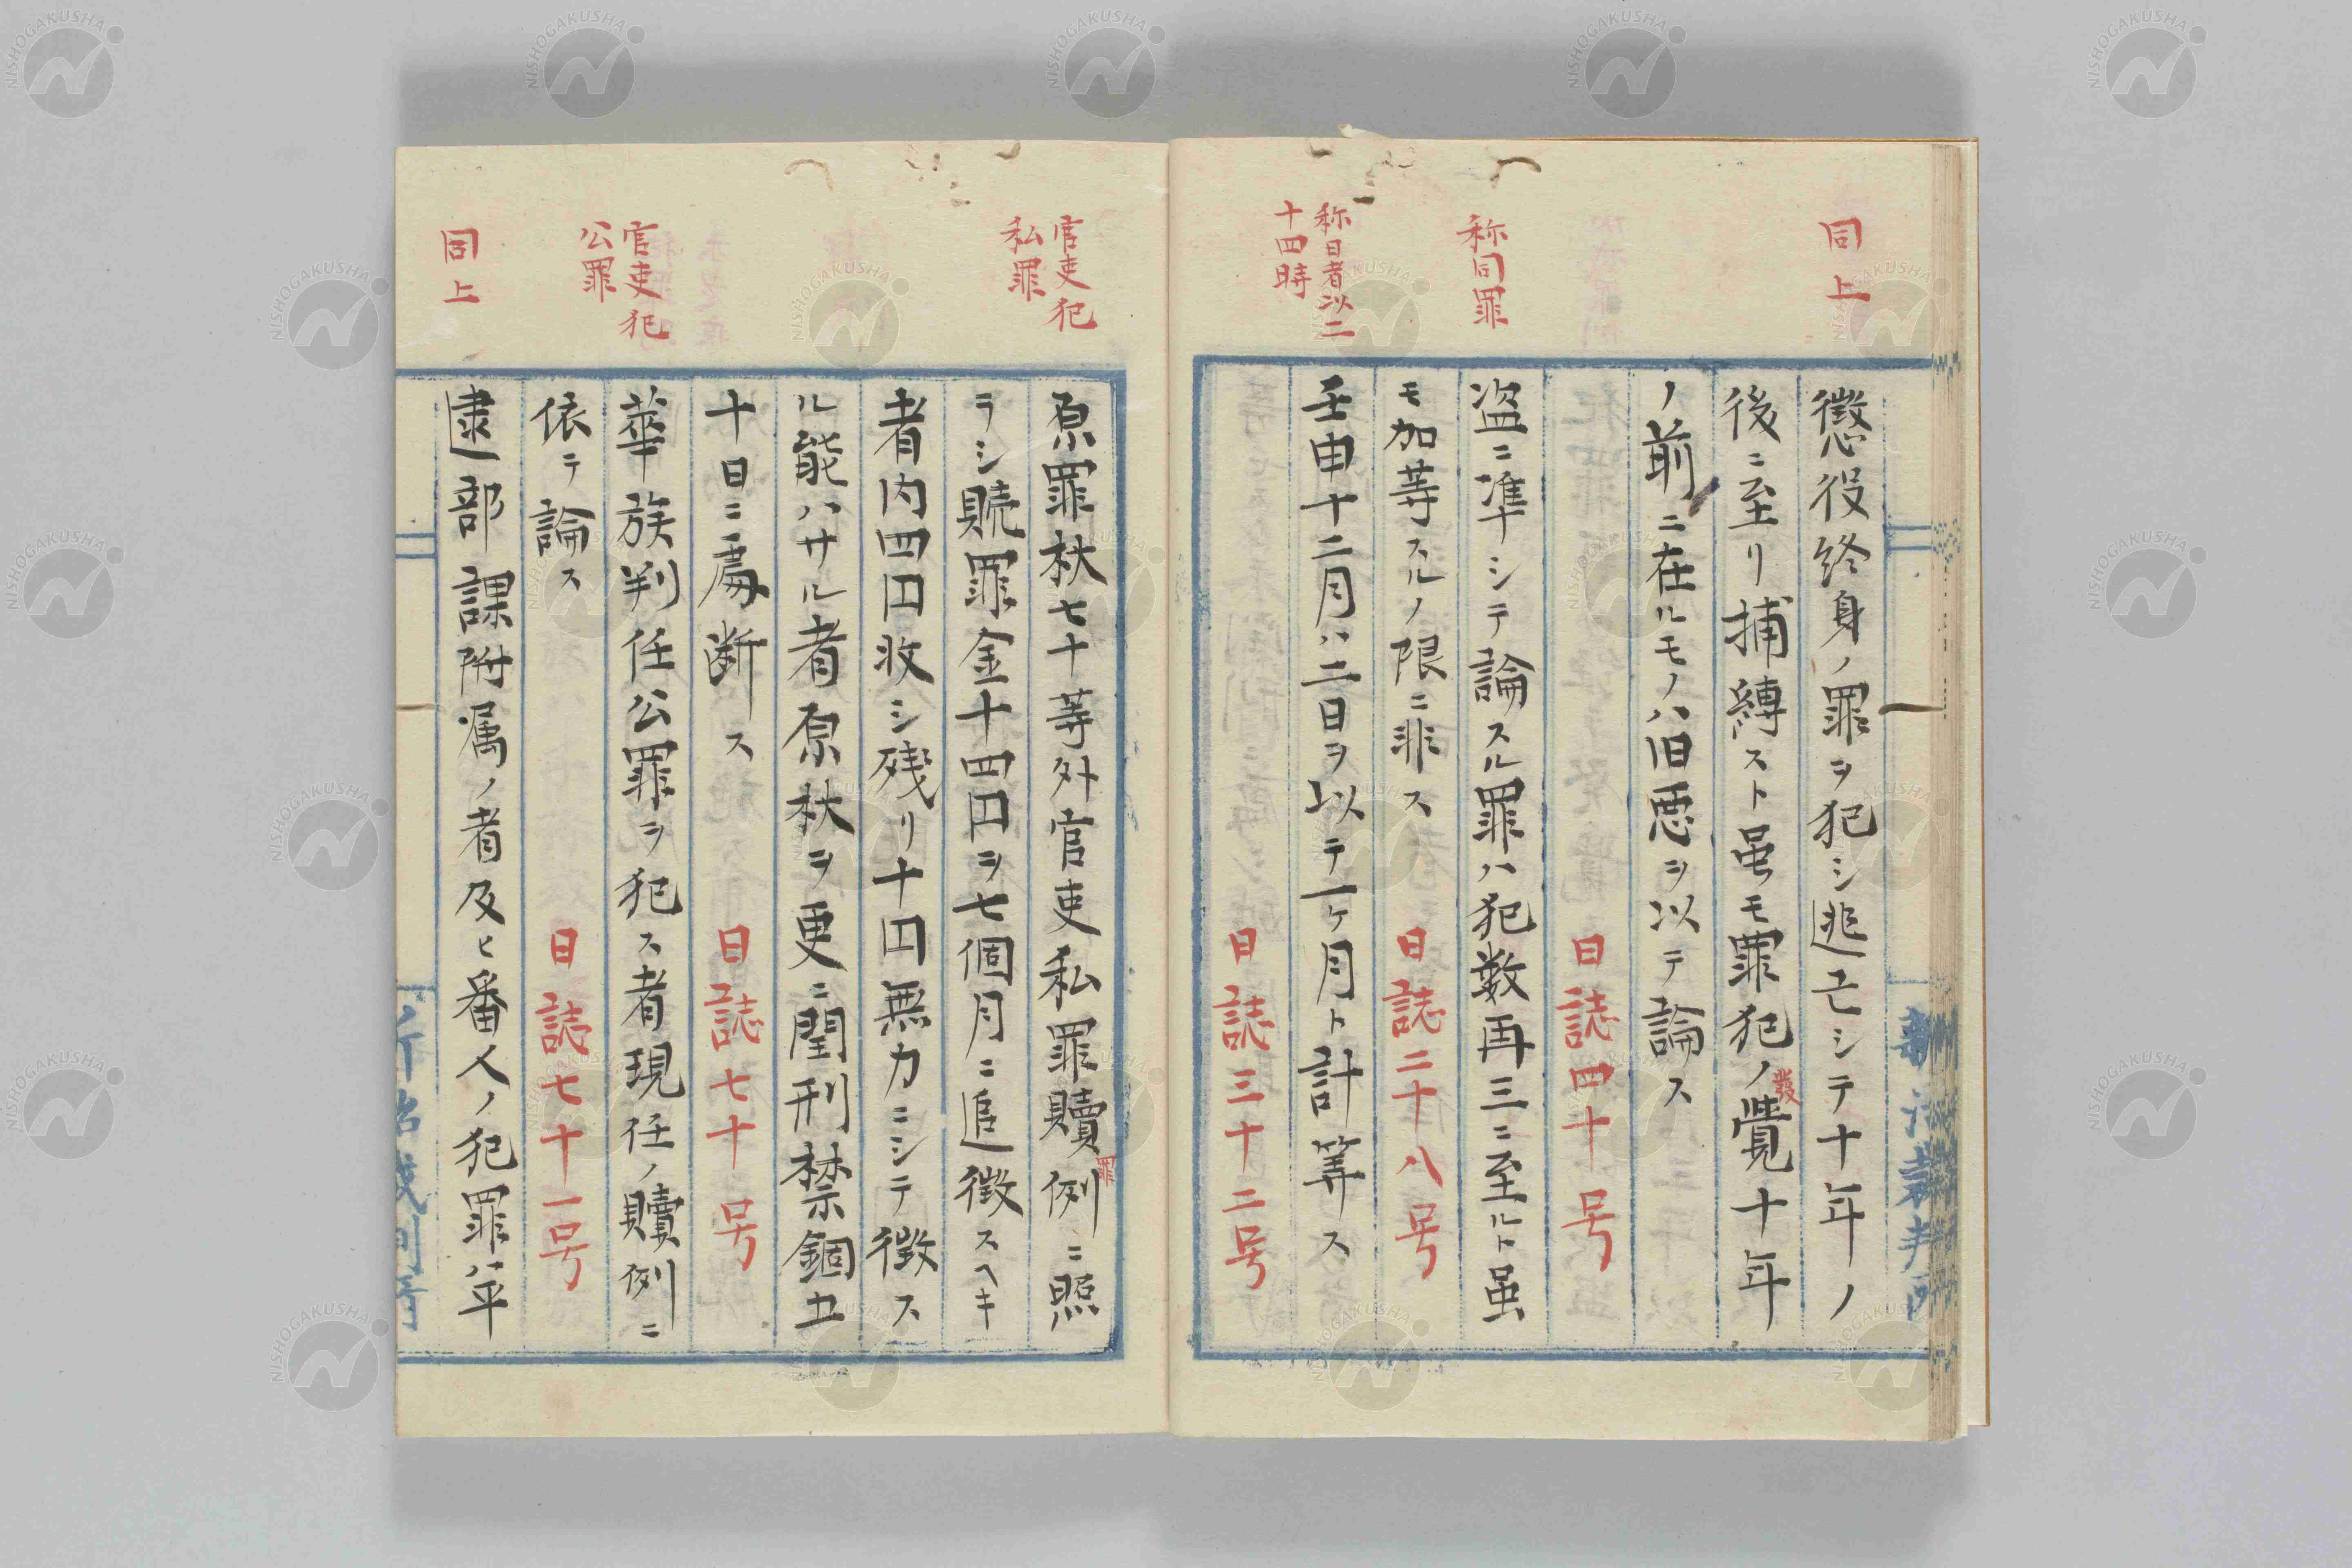 同上
懲役終身ノ罪ヲ犯シ逃亡シテ十年ノ
後ニ至リ捕縛スト虽モ罪犯ノ發覺十年
ノ前ニ在ルモノハ旧悪ヲ以テ論ス
日誌四十号
称同罪
盗ニ準シテ論スル罪ハ犯数再三ニ至ルト虽
モ加等スルノ限ニ非ス
日誌二十八号
称日者以二
十四時
壬申十二月ハ二日ヲ以テ一ケ月ト計算ス
日誌三十二号
官吏犯
私罪
原罪杖七十等外官吏私罪贖罪例ニ照
ラシ贖罪金十四円ヲ七個月ニ追徴スヘキ
者内四円收シ残リ十円無力ニシテ徴ス
ル能ハサル者原杖ヲ更ニ閏刑禁錮五
十日ニ處断ス
日誌七十号
官吏犯
公罪
華族判任公罪ヲ犯ス者現任ノ贖例ニ
依テ論ス
日誌七十一号
同上
逮部課附属ノ者及ヒ番人ノ犯罪ハ平
新治裁判所
NISHOGAKUSHA